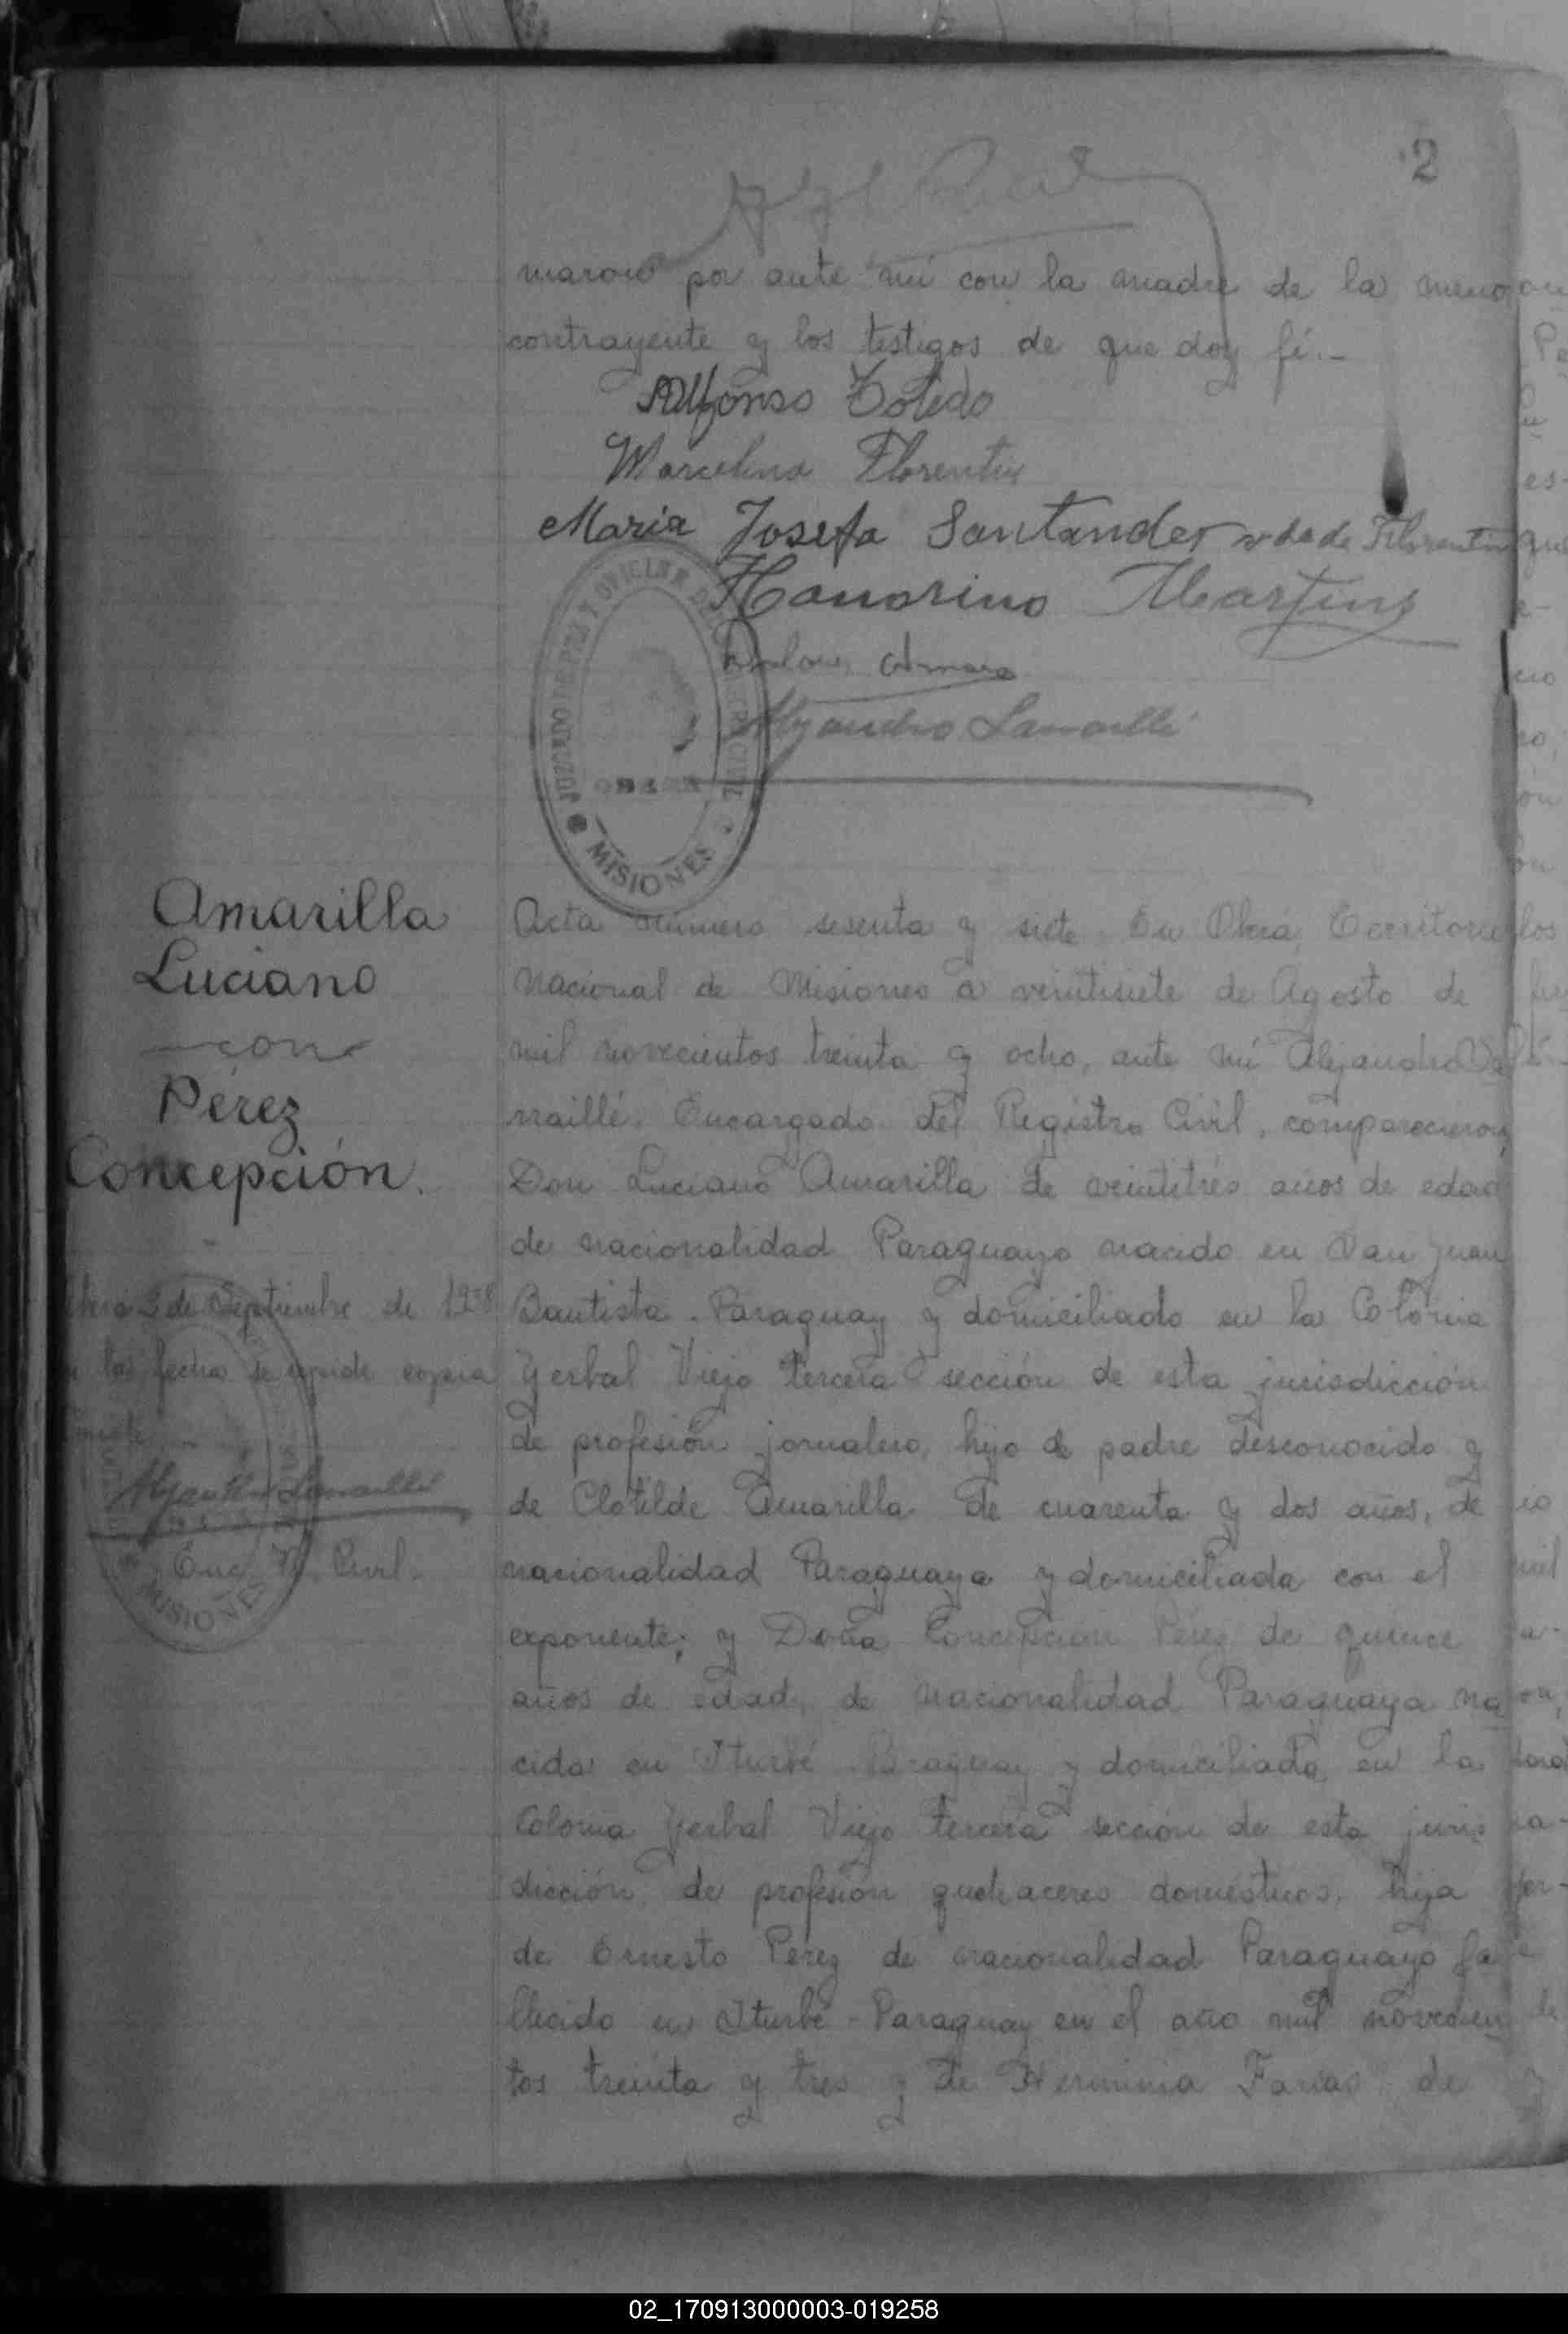 2
maron por ante mí con la madre de la menor
contrayente y los testigos de que doy fé.-
Alfonso Toledo
Marcelina Florentin
Maria Josefa Santander vda de Florentin
Honorino Martins
Amaro
Alejandro Lamaillé
JUZGADO DE PAZ Y OFICINA DEL REGISTRO CIVIL
OBERA
MISIONES
Amarilla
Luciano
con
Pérez
Concepción.
Acta número sesenta y siete. En Oberá, Territorio
Nacional de Misiones a veintisiete de Agosto de
mil novecientos treinta y ocho, ante mí Alejandro La
maillé, Encargado del Registro Civil, comparecieron
Don Luciano Amarilla de veintitrés años de edad
de nacionalidad Paraguayo nacido en San Juan
Bautista - Paraguay y domiciliado en la Colonia
Yerbal Viejo tercera sección de esta jurisdicción
de profesión jornalero, hijo de padre desconocido y
de Clotilde Amarilla de cuarenta y dos años, de
nacionalidad Paraguaya y domiciliada con el
exponente; y Doña Concepción Pérez de quince
años de edad, de nacionalidad Paraguaya na
cida en Iturbé - Paraguay y domiciliada en la
Colonia Yerbal Viejo tercera sección de esta juris
dicción, de profesión quehaceres domésticos, hija
de Ernesto Pérez de nacionalidad Paraguayo fa
llecido en Iturbé - Paraguay en el año mil novecien
tos treinta y tres y de Herminia Farias de
Oberá 2 de Septiembre de 1938
la fecha se expide copia
Alejandro Lamaillé
Enc. R. Civil.
MISIONES
02_170913000003-019258